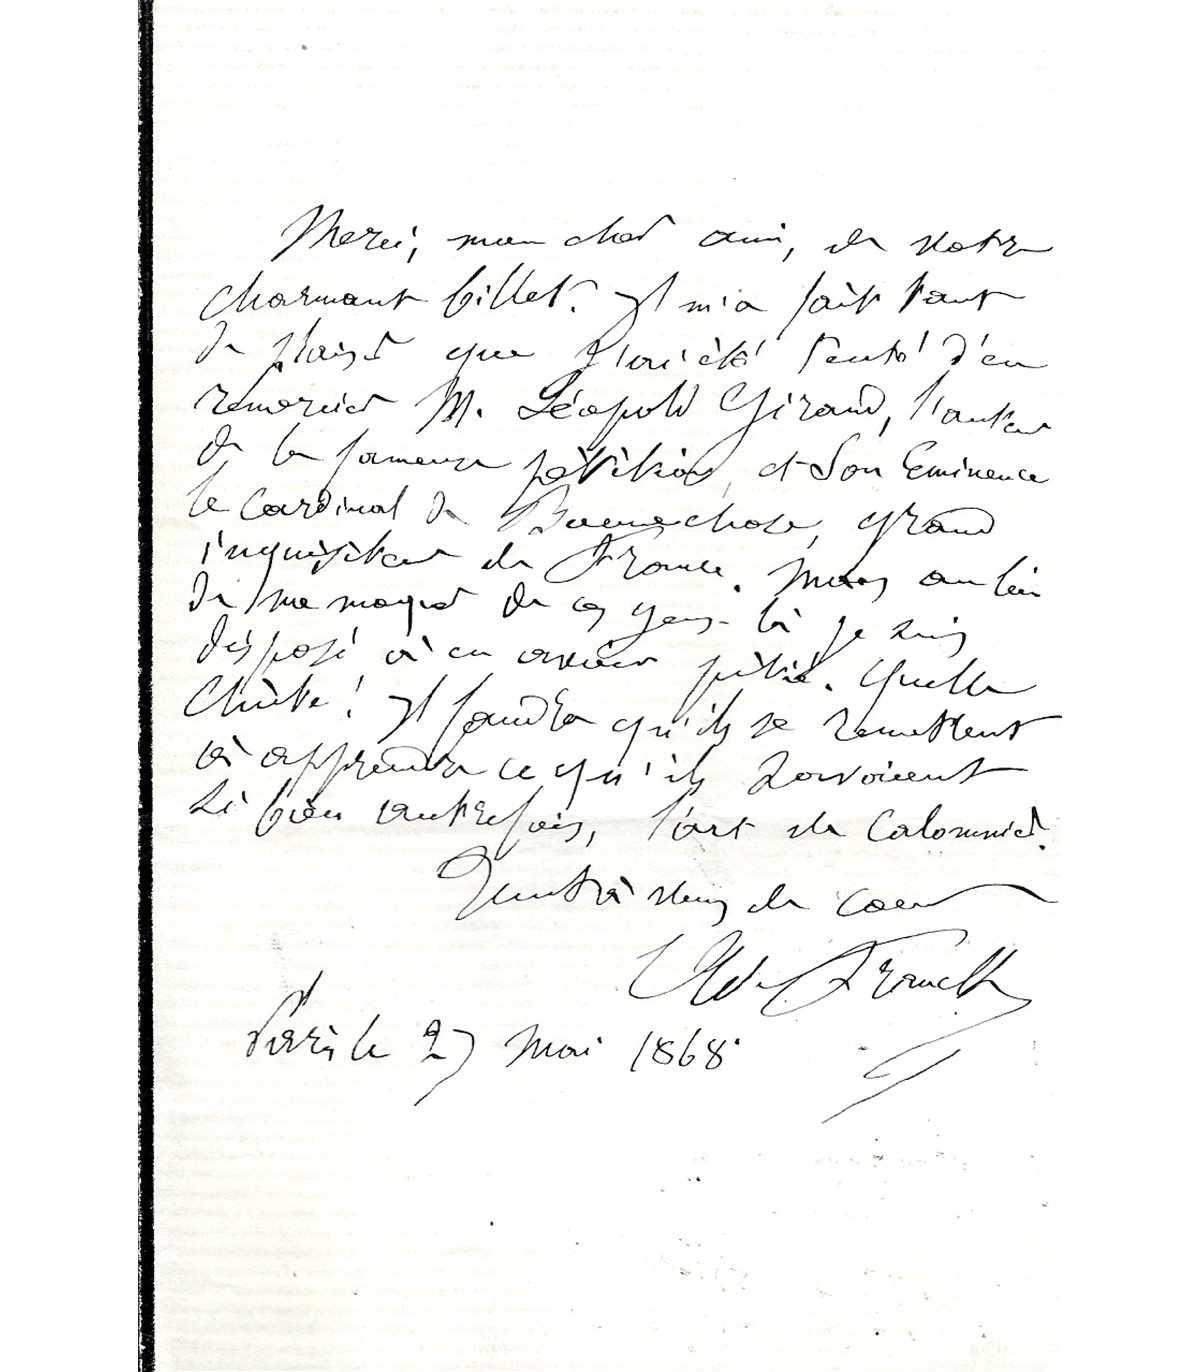 Merci, mon cher ami, de votre
charmant billet. Il m'a fait tant
de plaisir que j'ai été tenté d'en
remercier M. Léopold Giraud, l'auteur
de la fameuse pétition, et Son Eminence
le Cardinal de Bonnechose, grand
inquisiteur de France. Mais au lieu
de me moquer de ces gens-là je suis
disposé à en avoir pitié. Quelle
chute! Il faudra qu'ils se remettent
à apprendre ce qu'ils savaient
si bien autrefois, l'art de calomnier.
Tout à vous de coeur
Ad. Franck
Paris le 27 mai 1868.